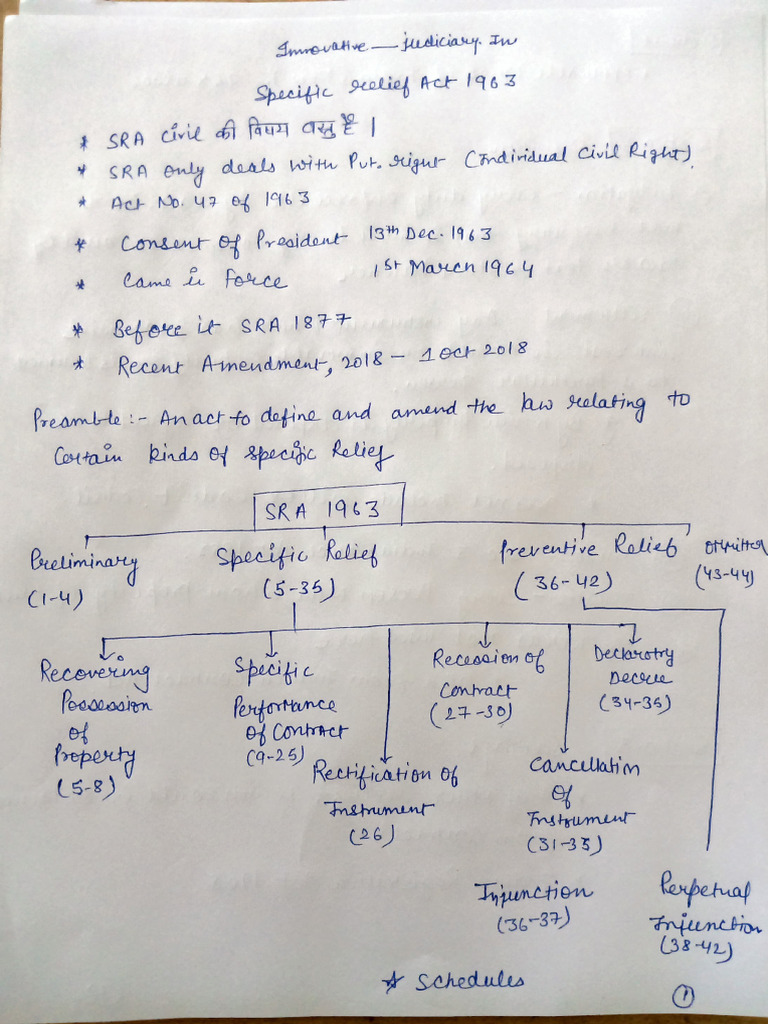 Innovative — judiciary. In
Specific relief Act 1963
* SRA civil की विषय वस्तु है |
* SRA only deals with Pvt. right (Individual Civil Right).
* Act No. 47 of 1963
* Consent of President 13th Dec. 1963
* Came in force 1st March 1964
* Before it SRA 1877
* Recent Amendment, 2018 – 1 Oct 2018
Preamble :- An act to define and amend the law relating to
Certain kinds of specific Relief
SRA 1963
Preliminary
(1-4)
Specific Relief
(5-35)
Preventive Relief
(36-42)
(43-44)
Recovering
Possession
of
Property
(5-8)
Specific
Performance
of Contract
(9-25)
Rectification of
Instrument
(26)
Recession of
Contract
(27-30)
Cancellation
of
Instrument
(31-33)
Declarotry
Decree
(34-35)
Injunction
(36-37)
Perpetual
Injunction
(38-42)
* Schedules
1